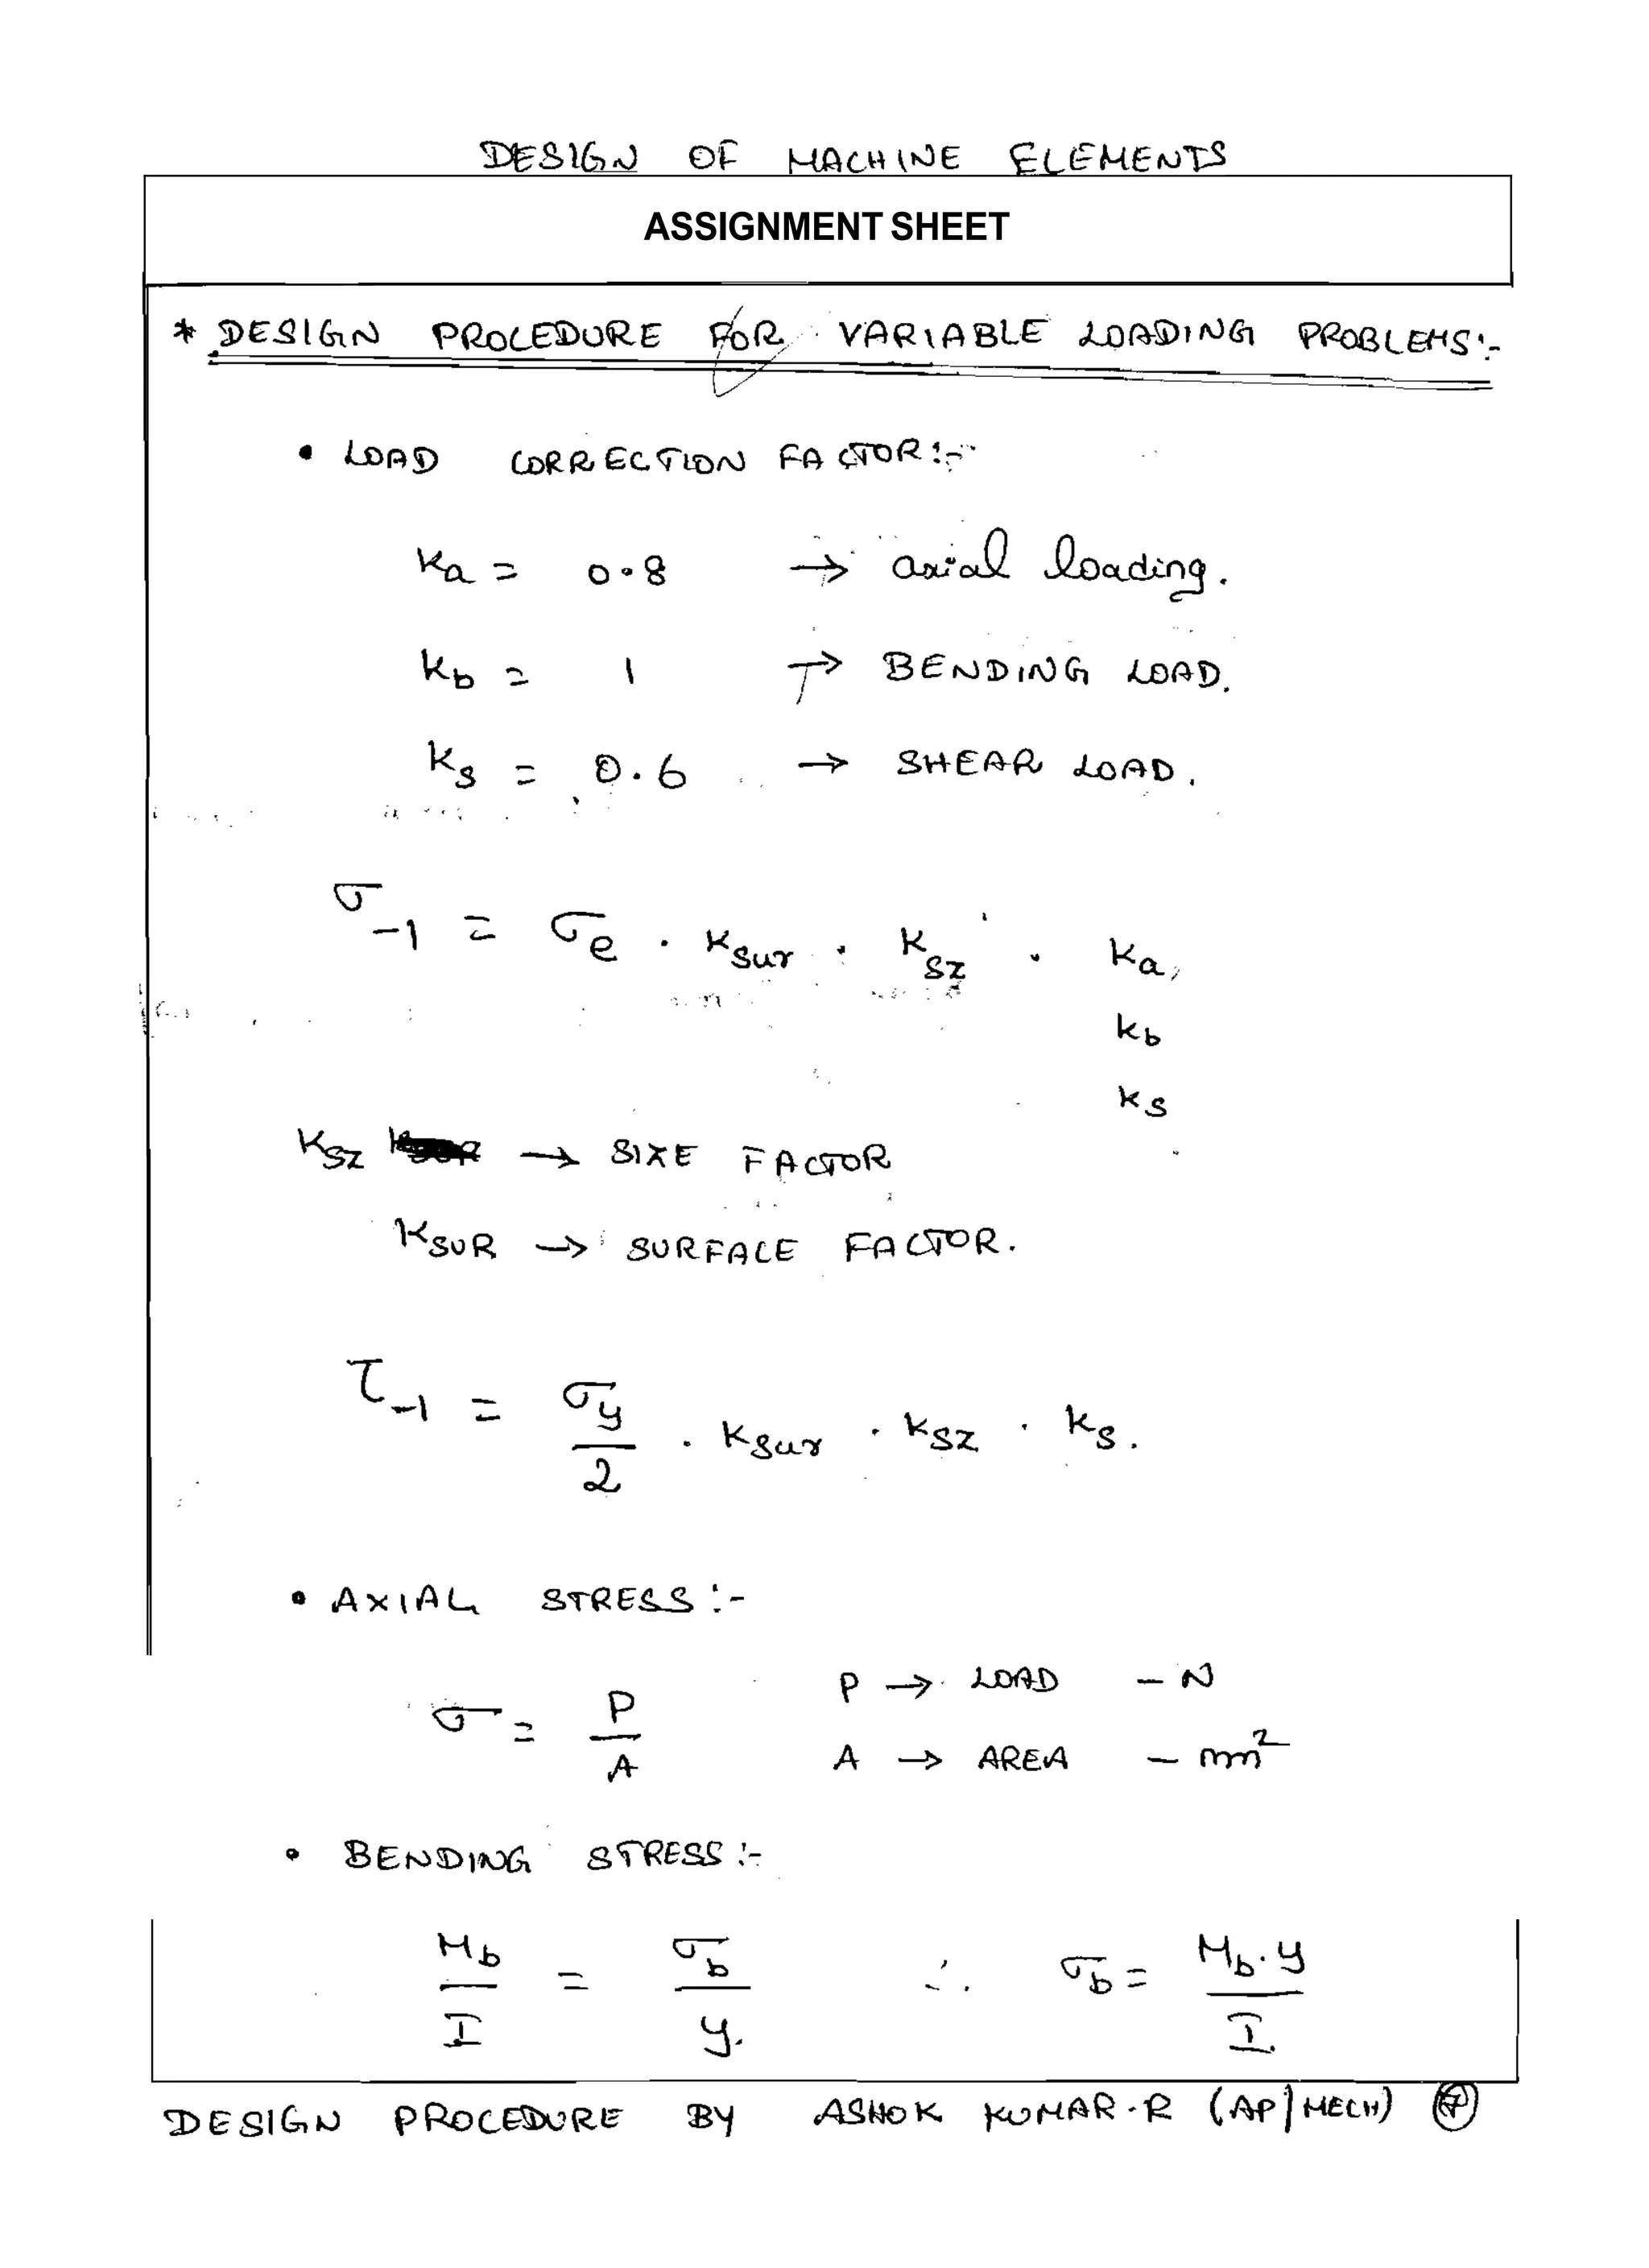 DESIGN OF MACHINE ELEMENTS
ASSIGNMENT SHEET
* DESIGN PROCEDURE FOR VARIABLE LOADING PROBLEMS:-
• LOAD CORRECTION FACTOR:-
Ka = 0.8 → axial loading.
Kb = 1 → BENDING LOAD.
Ks = 0.6 → SHEAR LOAD.
σ-1 = σe . Ksur . Ksz . Ka,
Kb
Ks
Ksz → SIZE FACTOR
KSUR → SURFACE FACTOR.
τ-1 = σy/2 . Ksur . Ksz . Ks.
• AXIAL STRESS:-
σ = P/A P → LOAD - N
A → AREA - mm²
• BENDING STRESS:-
Mb/I = σb/y. ∴ σb = Mb.y/I.
DESIGN PROCEDURE BY ASHOK KUMAR.R (AP/MECH)